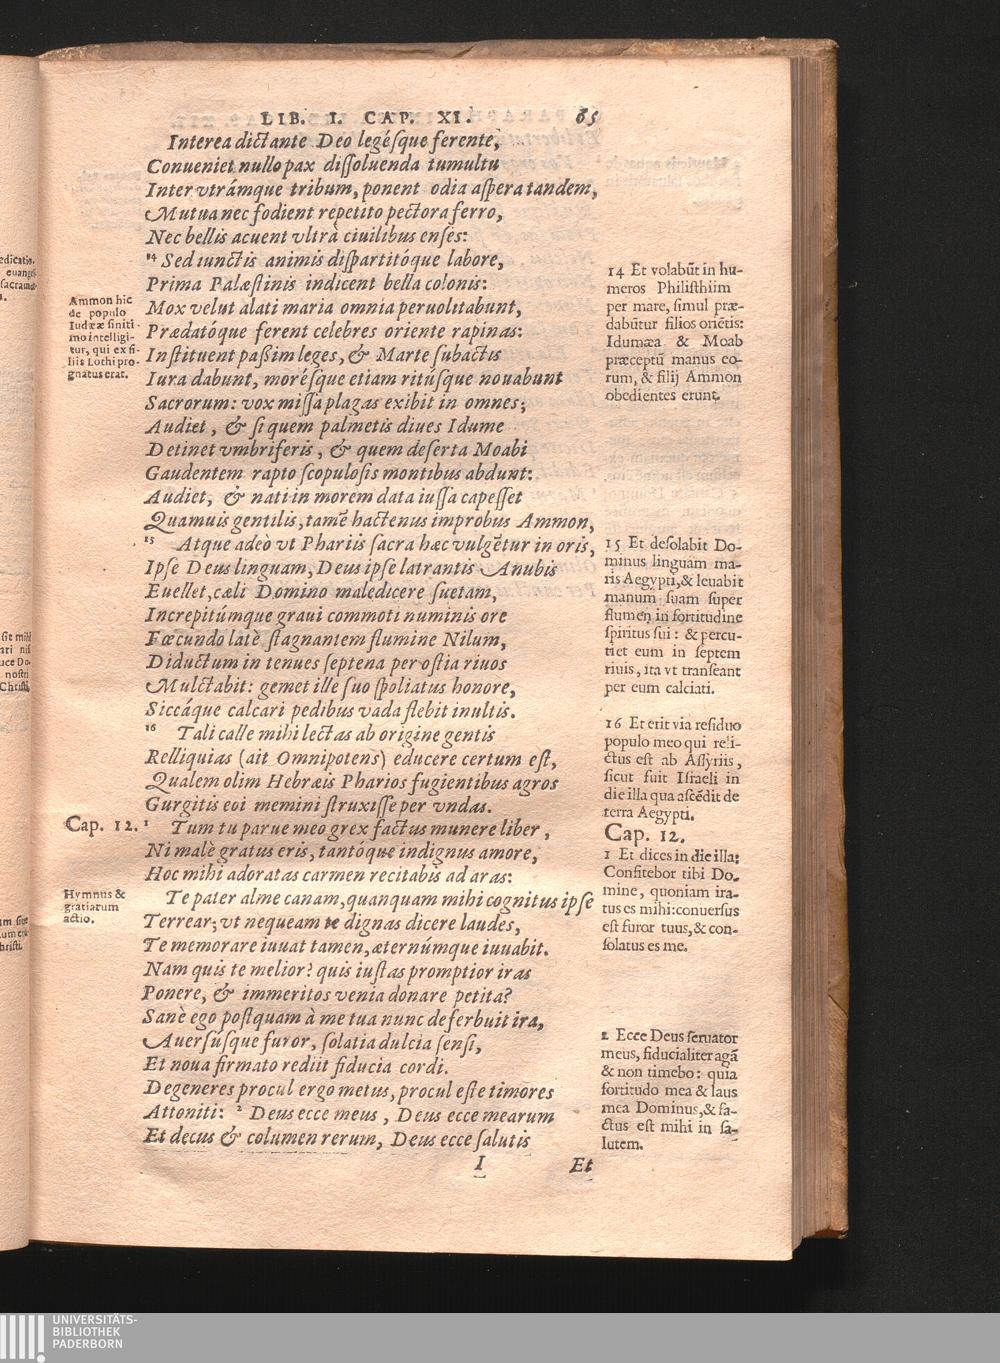 LIB. I. CAP. XI. 65
Interea dictante Deo legésque ferente,
Conueniet nullo pax dissoluenda tumultu
Inter vtrámque tribum, ponent odia aspera tandem,
Mutua nec fodient repetito pectora ferro,
Nec bellis acuent vltrà ciuilibus enses:
14 Sed iunctis animis dispartitóque labore,
Prima Palæstinis indicent bella colonis:
Mox velut alati maria omnia peruolitabunt,
Prædatóque ferent celebres oriente rapinas:
Instituent paßim leges, & Marte subactis
Iura dabunt, morésque etiam ritúsque nouabunt
Sacrorum: vox missa plagas exibit in omnes;
Audiet, & si quem palmetis diues Idume
Detinet vmbriferis, & quem deserta Moabi
Gaudentem rapto scopulosis montibus abdunt:
Audiet, & nati in morem data iussa capesset
Quamuis gentilis, tamẽ hactenus improbus Ammon,
15 Atque adeò vt Phariis sacra hæc vulgẽtur in oris,
Ipse Deus linguam, Deus ipse latrantis Anubis
Euellet, cæli Domino maledicere suetam,
Increpitúmque graui commoti numinis ore
Fœcundo latè stagnantem flumine Nilum,
Diductum in tenues septena per ostia riuos
Mulctabit: gemet ille suo spoliatus honore,
Siccáque calcari pedibus vada flebit inultis.
16 Tali calle mihi lectas ab origine gentis
Relliquias (ait Omnipotens) educere certum est,
Qualem olim Hebræis Pharios fugientibus agros
Gurgitis eoi memini struxisse per vndas.
Cap. 12. 1 Tum tu parue meo grex factus munere liber,
Ni malè gratus eris, tantóque indignus amore,
Hoc mihi adoratas carmen recitabis ad aras:
Te pater alme canam, quanquam mihi cognitus ipse
Terrear; vt nequeam te dignas dicere laudes,
Te memorare iuuat tamen, æternúmque iuuabit.
Nam quis te melior? quis iustas promptior iras
Ponere, & immeritos venia donare petita?
Sanè ego postquam à me tua nunc deferbuit ira,
Auersúsque furor, solatia dulcia sensi,
Et noua firmato rediit fiducia cordi.
Degeneres procul ergo metus, procul este timores
Attoniti: 2 Deus ecce meus, Deus ecce mearum
Et decus & columen rerum, Deus ecce salutis
I Et
Ammon hic
de populo
Iudææ finiti-
mo intelligi-
tur, qui ex fi-
liis Lothi pro-
gnatus erat.
Hymnus &
gratiarum
actio.
14 Et volabũt in hu-
meros Philisthiim
per mare, simul præ-
dabũtur filios oriẽtis:
Idumæa & Moab
præceptũ manus eo-
rum, & filij Ammon
obedientes erunt.
15 Et desolabit Do-
minus linguam ma-
ris Aegypti, & leuabit
manum suam super
flumen in fortitudine
spiritus sui: & percu-
tiet eum in septem
riuis, ita vt transeant
per eum calciati.
16 Et erit via residuo
populo meo qui reli-
ctus est ab Assyriis,
sicut fuit Israeli in
die illa qua ascẽdit de
terra Aegypti.
Cap. 12.
1 Et dices in die illa:
Confitebor tibi Do-
mine, quoniam ira-
tus es mihi: conuersus
est furor tuus, & con-
solatus es me.
2 Ecce Deus seruator
meus, fiducialiter agã
& non timebo: quia
fortitudo mea & laus
mea Dominus, & fa-
ctus est mihi in sa-
lutem.
UNIVERSITÄTS-
BIBLIOTHEK
PADERBORN